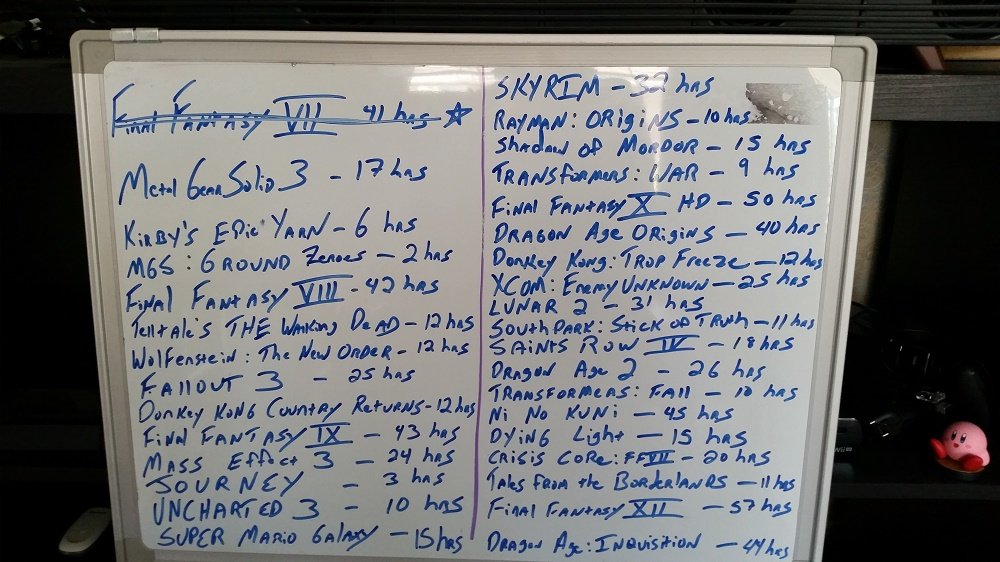 Final Fantasy VII 41 hrs ☆
Metal Gear Solid 3 - 17 hrs
Kirby's Epic Yarn - 6 hrs
MGS: Ground Zeroes - 2 hrs
Final Fantasy VIII - 42 hrs
Telltale's THE Walking Dead - 12 hrs
Wolfenstein: The New Order - 12 hrs
Fallout 3 - 25 hrs
Donkey Kong Country Returns - 12 hrs
Final Fantasy IX - 43 hrs
Mass Effect 3 - 24 hrs
JOURNEY - 3 hrs
UNCHARTED 3 - 10 hrs
SUPER MARIO GALAXY - 15 hrs
SKYRIM - 32 hrs
RAYMAN: ORIGINS - 10 hrs
Shadow of Mordor - 15 hrs
TRANSFORMERS: WAR - 9 hrs
Final Fantasy X HD - 50 hrs
Dragon Age Origins - 40 hrs
Donkey Kong: Trop Freeze - 12 hrs
XCOM: Enemy Unknown - 25 hrs
LUNAR 2 - 31 hrs
South Park: Stick of Truth - 11 hrs
SAINTS ROW IV - 18 hrs
Dragon Age 2 - 26 hrs
TRANSFORMERS: FALL - 10 hrs
Ni No Kuni - 45 hrs
Dying Light - 15 hrs
Crisis Core: FFVII - 20 hrs
Tales from the Borderlands - 11 hrs
Final Fantasy XII - 57 hrs
Dragon Age: Inquisition - 44 hrs